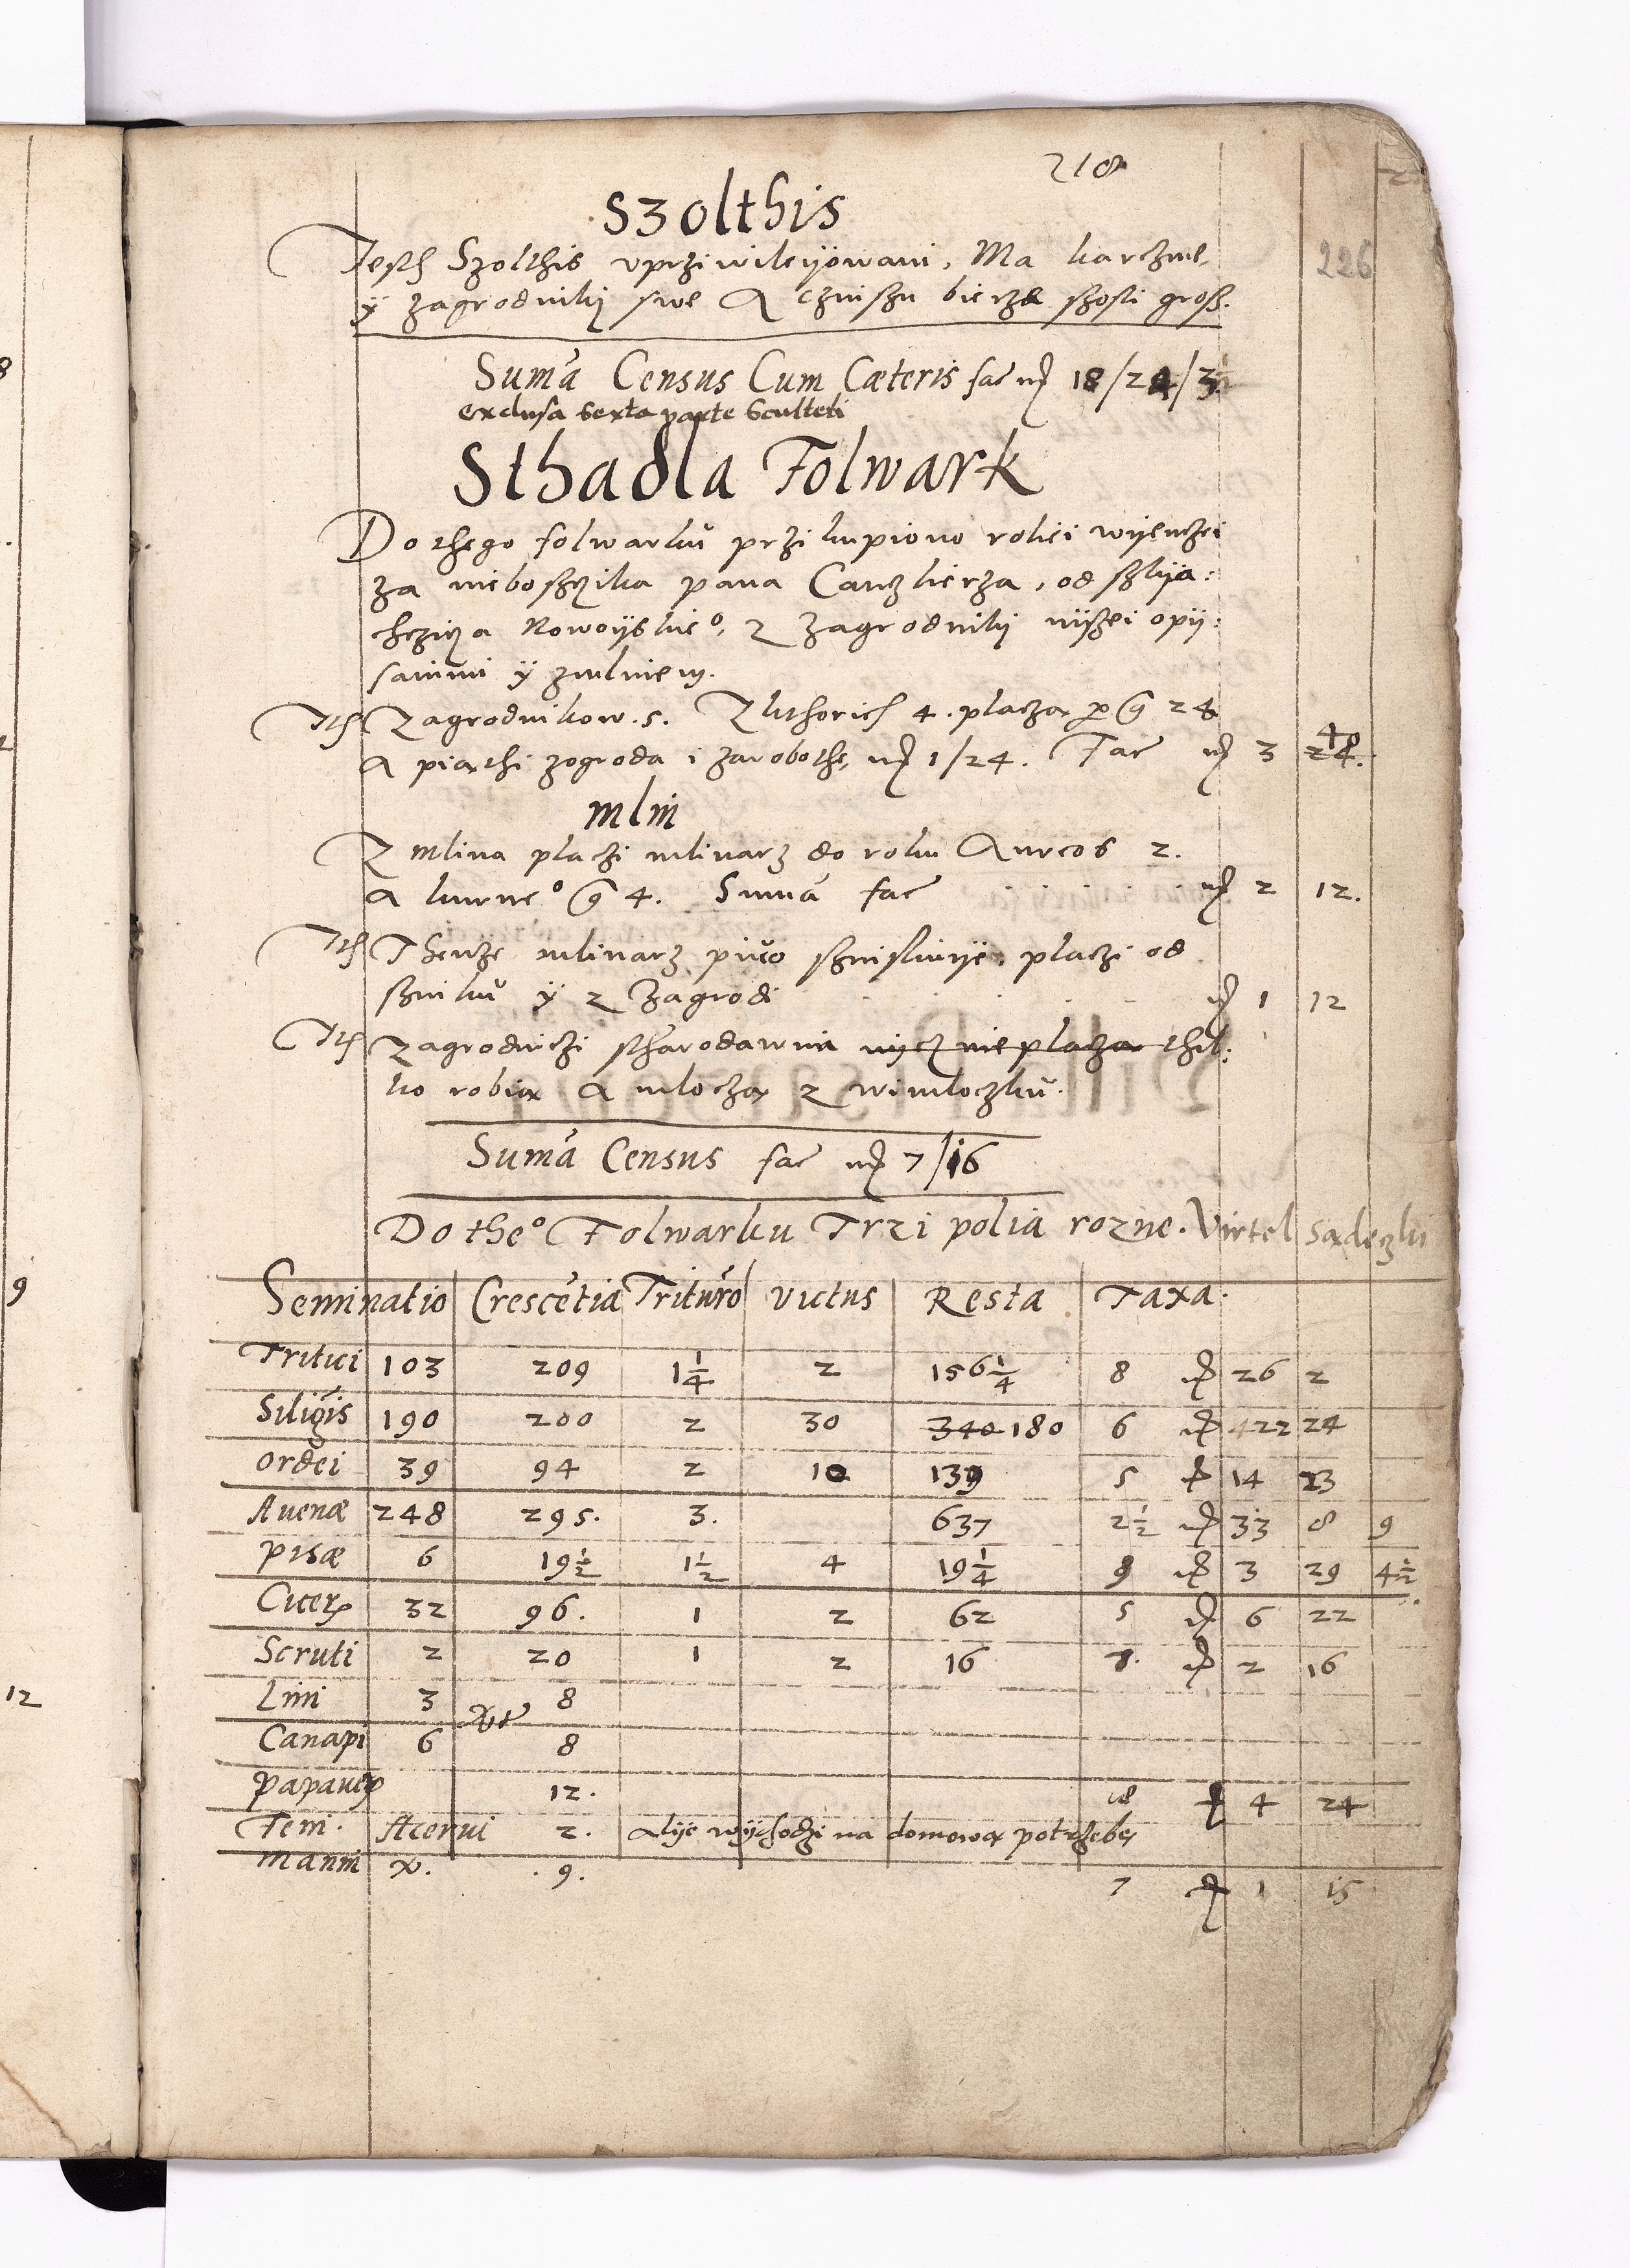 218
226
Szolthis
Jesth Szolthis vprziwileijowani, Ma karczmę
ÿ zagrodnikij swe A czinszu bierze szosti grosz.
Suma Census Cum Cæteris fac mr 18/24/3½
exclusa sexta parte Sculteti
Sthadla Folwark
Do thego folwarku przikupiono roliei wijenczei
za nieboszczika pana Canczlierza, od szlija:
chczicza Nowoijskie°, z zagrodnikij nijzei opij:
sanimi ÿ zmlinem.
Ith Zagrodnikow. 5. Z kthorich 4. placza per g 24
A piathi zogroda i zarobothę, mr 1/24. Fac mr 3 4 28.
Mlin
Z mlina placzi mlinarz do roku Aureos 2.
A kurne° g 4. Suma fac mr 2 12.
Ith Thenze mlinarz piwo szinkuije, placzi od
szinku ÿ z zagrodi mr 1 12
Ith Zagrodniczi stharodawni nijcz nie placza thil:
ko robia A mlocza z wimloczku.
Suma Census fac mr 7/16
Do the° Folwarku Trzi polia rozne. Virtel Sadeczki
Seminatio Crescetia Trituro Victus Resta Taxa.
Tritici 103 209 1¼ 2 156¼ 8 mr 26 2
Siligis 190 200 2 30 340 180 6 mr 422 24
Ordei 39 94 2 10 139 5 mr 14 23
Auenæ 248 295. 3. 637 2½ mr 33 8 9
Pisæ 6 19½ 1½ 4 19¼ 9 mr 3 29 4½
Cicer 32 96. 1 2 62 5 mr 6 22
Scruti 2 20 1 2 16 8. mr 2 16
Lini 3 8
Canapi 6 8
Papauer 12. 18 mr 4 24
Feni. Acerui 2. Alije wijchodzi na domowa potrzebę
Manni x. 9. 7 mr 1 15
9
12